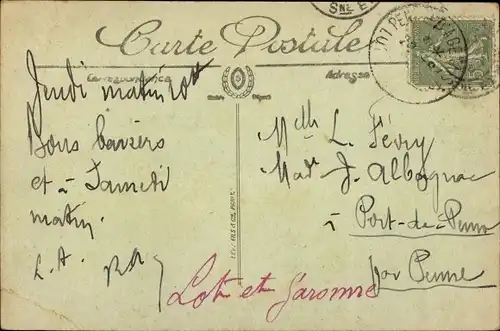 Sne E
Carte Postale
Correspondance
Adresse
Jeudi matin 10h
Bons baisers
et à Samedi
matin.
L. A.
Melle L. Févry
Made J. Albagnac
à Port-de-Penne
par Penne
Lot et Garonne
LEVY FILS & CIE, PARIS